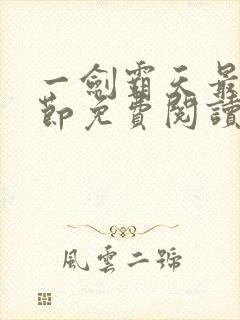 一劍霸天最
節免費閱讀
風雲二號